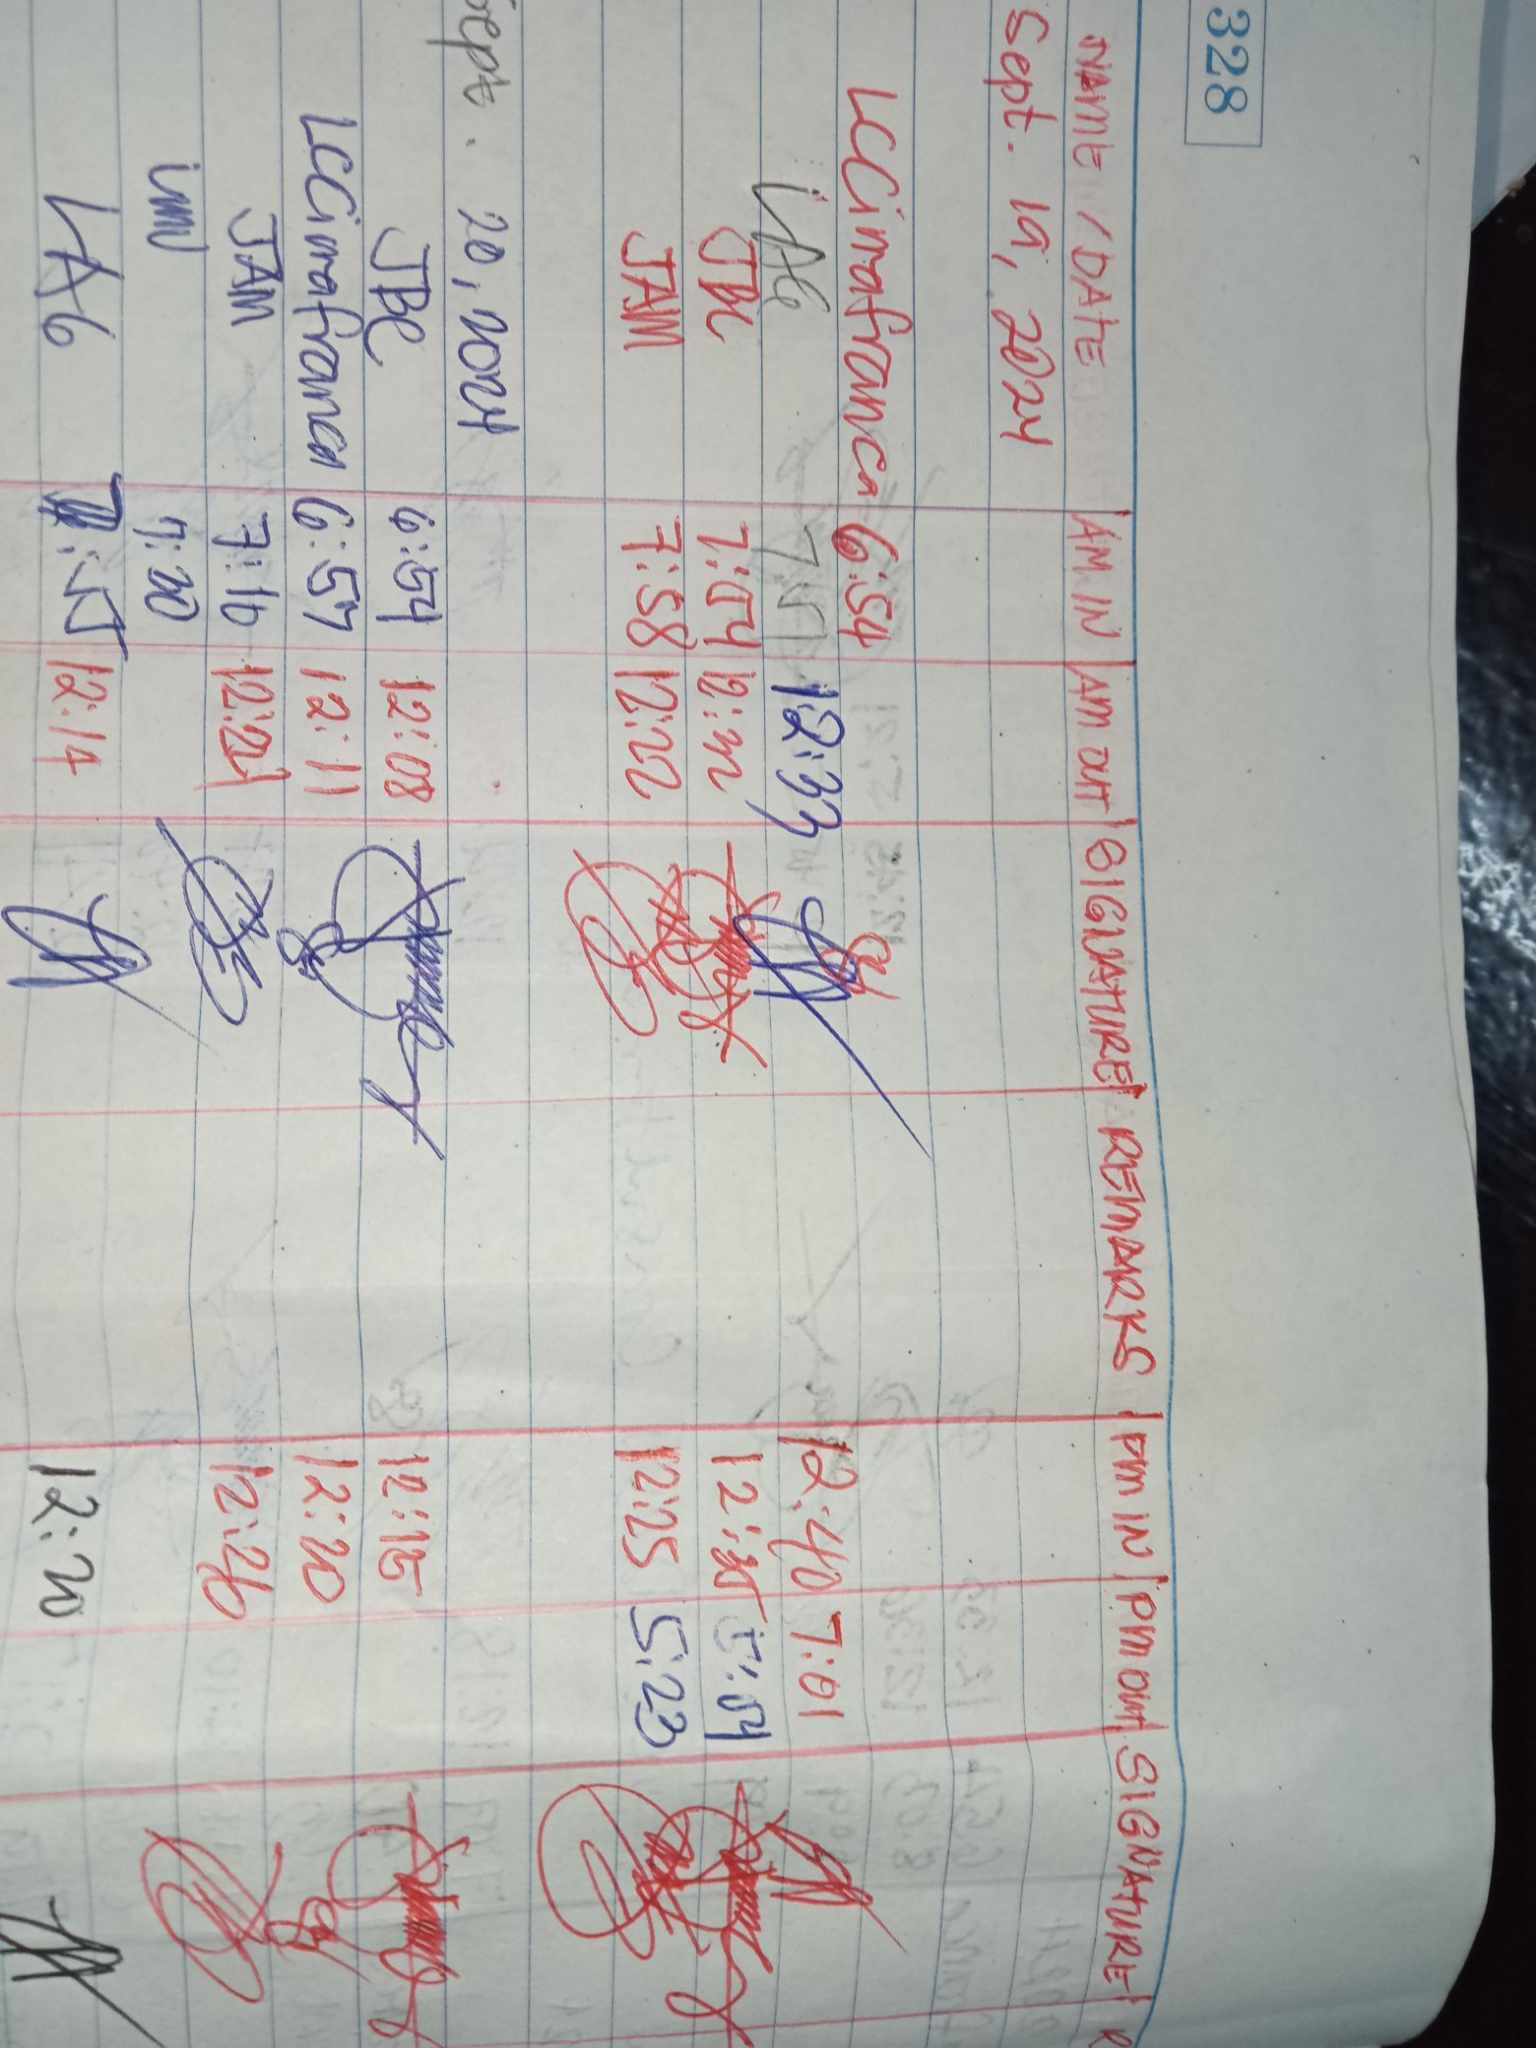 328
NAME / DATE AM IN AM OUT SIGNATURE REMARKS PM IN PM OUT SIGNATURE R
Sept. 19, 2024
LCCimafranca 6:54
LAG 12:33 12:40 7:01
JBC 7:04 12:35 5:04
JAM 7:58 12:22 12:25 5:23
Sept. 20, 2024
JBC 6:54 12:08 12:15
LCCimafranca 6:57 12:11 12:20
JAM 7:16 12:21 12:26
7:20
LAG 12:14 12:20